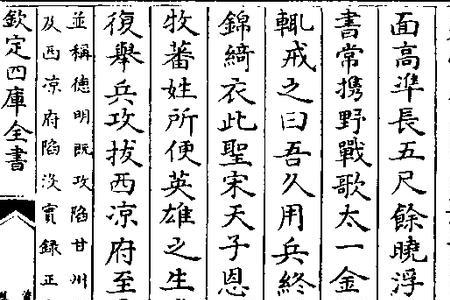 面高準長五尺餘曉浮
書常攜野戰歌太一金
輒戒之曰吾久用兵終
錦綺衣此聖宋天子恩
牧蕃姓所便英雄之生
復舉兵攻拔西凉府至
並稱德明既攻陷甘州
及西凉府陷沒實録正
欽定四庫全書